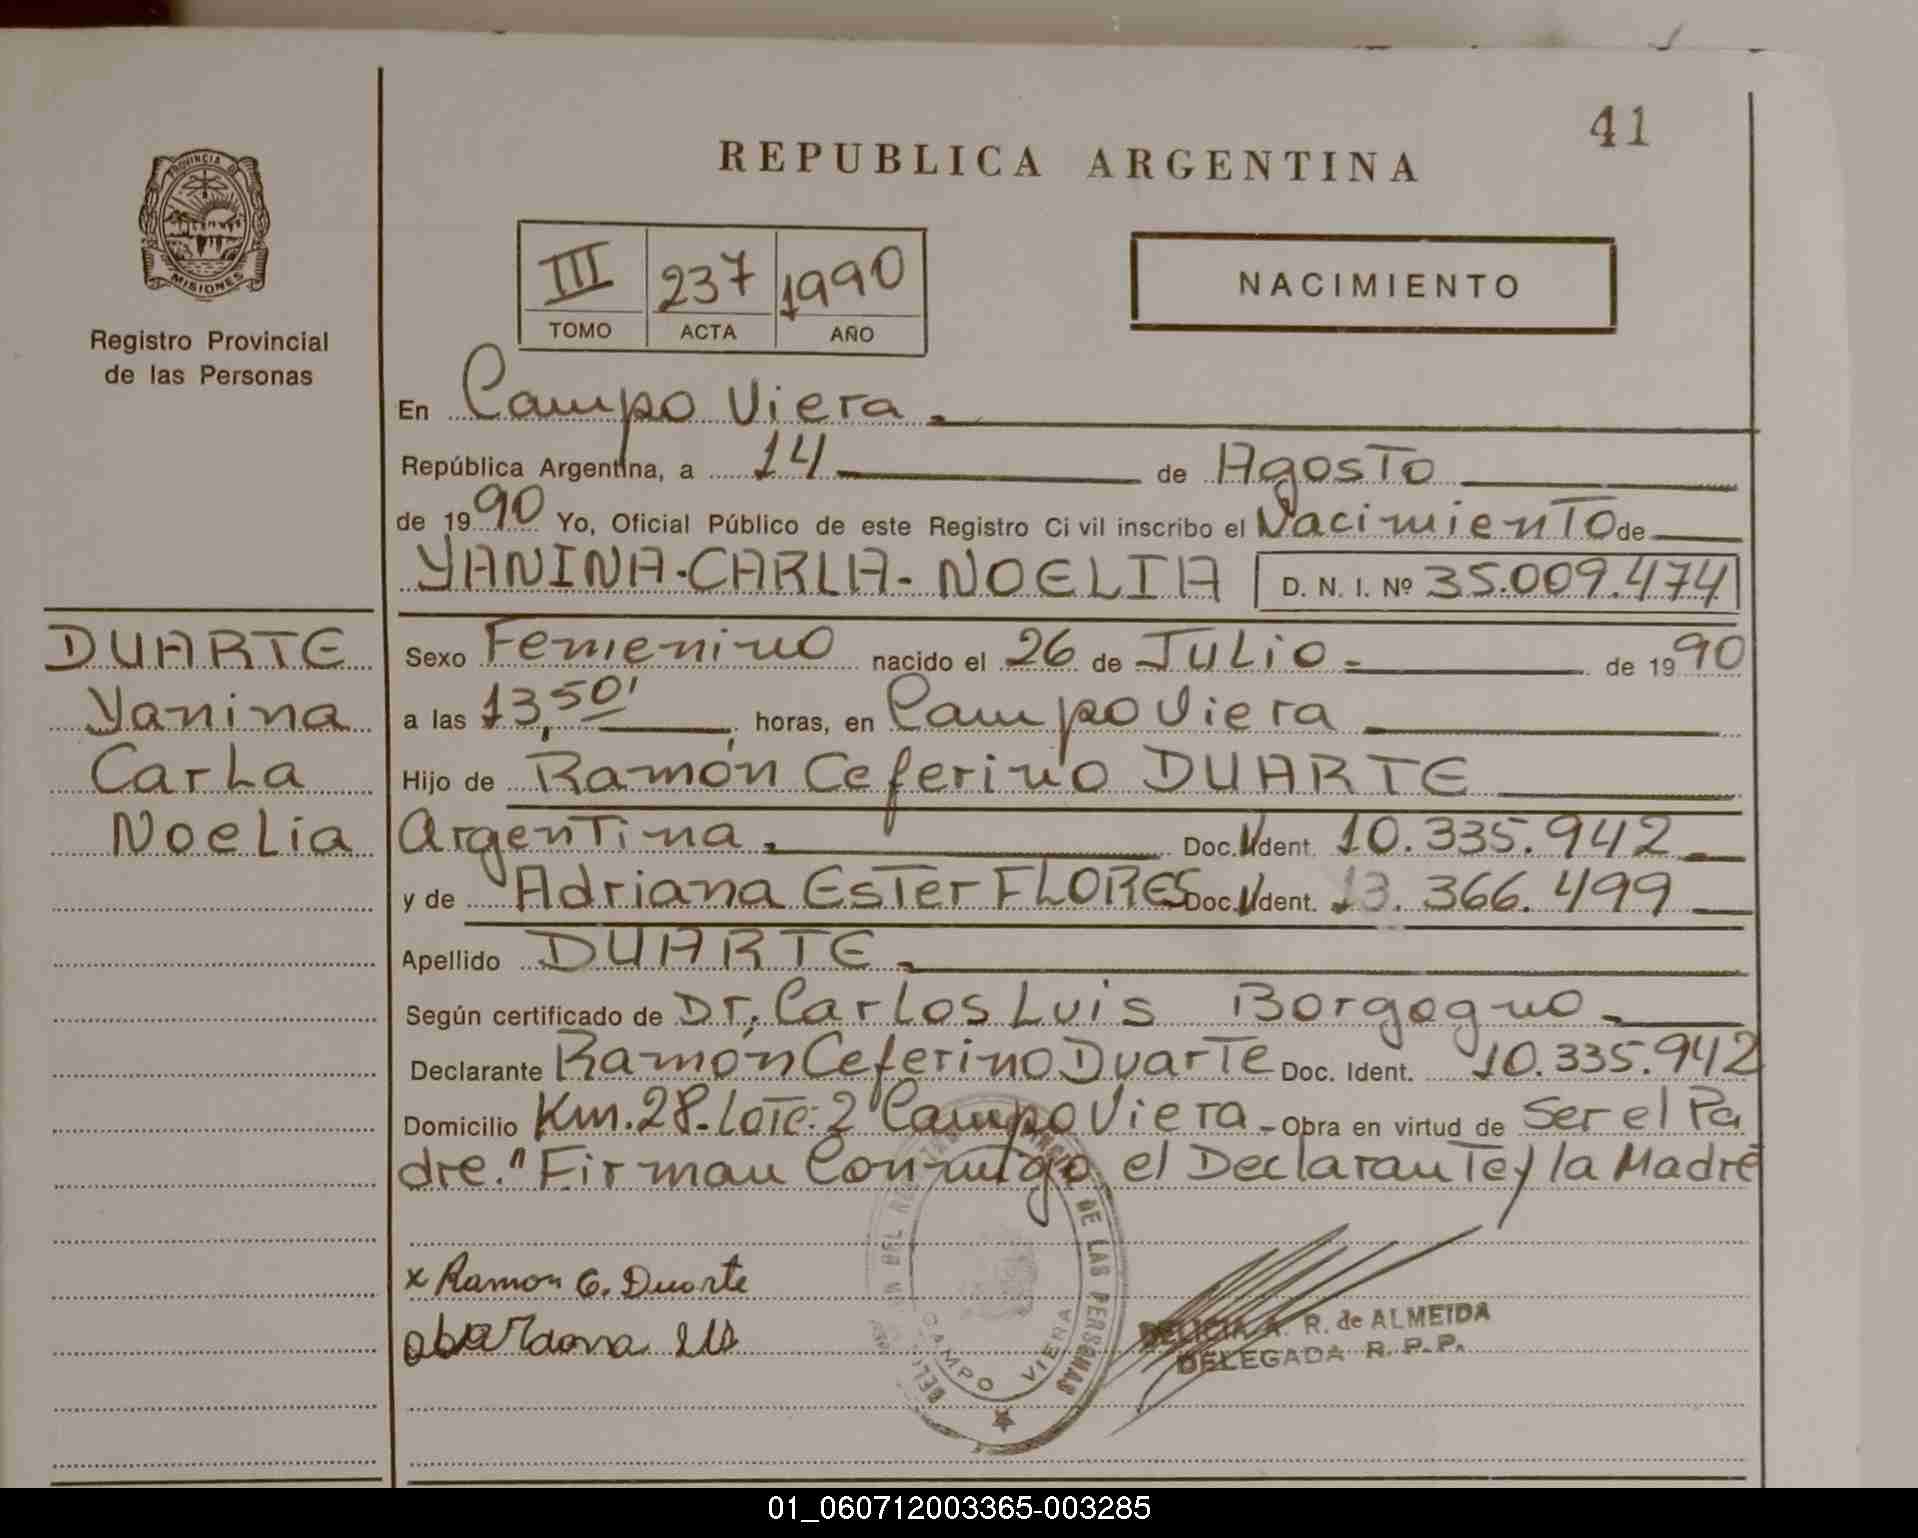 41
REPUBLICA ARGENTINA
PROVINCIA DE
MISIONES
Registro Provincial
de las Personas
III 237 1990
TOMO ACTA AÑO
NACIMIENTO
En Campo Viera.
República Argentina, a 14 de Agosto
de 1990 Yo, Oficial Público de este Registro Ci vil inscribo el Nacimiento de
YANINA-CARLA-NOELIA D. N. I. Nº 35.009.474
DUARTE
Yanina
Carla
Noelia
Sexo Femenino nacido el 26 de Julio.- de 1990
a las 13,50' horas, en Campo Viera
Hijo de Ramón Ceferino DUARTE
Argentina. Doc. Ident. 10.335.942
y de Adriana Ester FLORES Doc. Ident. 13.366.499
Apellido DUARTE.
Según certificado de Dr. Carlos Luis Borgogno.
Declarante Ramón Ceferino Duarte Doc. Ident. 10.335.942
Domicilio Km.28-Lote:2 Campo Viera - Obra en virtud de Ser el Pa
dre." Firman Conmigo el Declarante y la Madre
x Ramon C. Duarte
DE LAS PERSONAS
CAMPO VIERA
DELICIA A. R. de ALMEIDA
DELEGADA R. P. P.
01_060712003365-003285